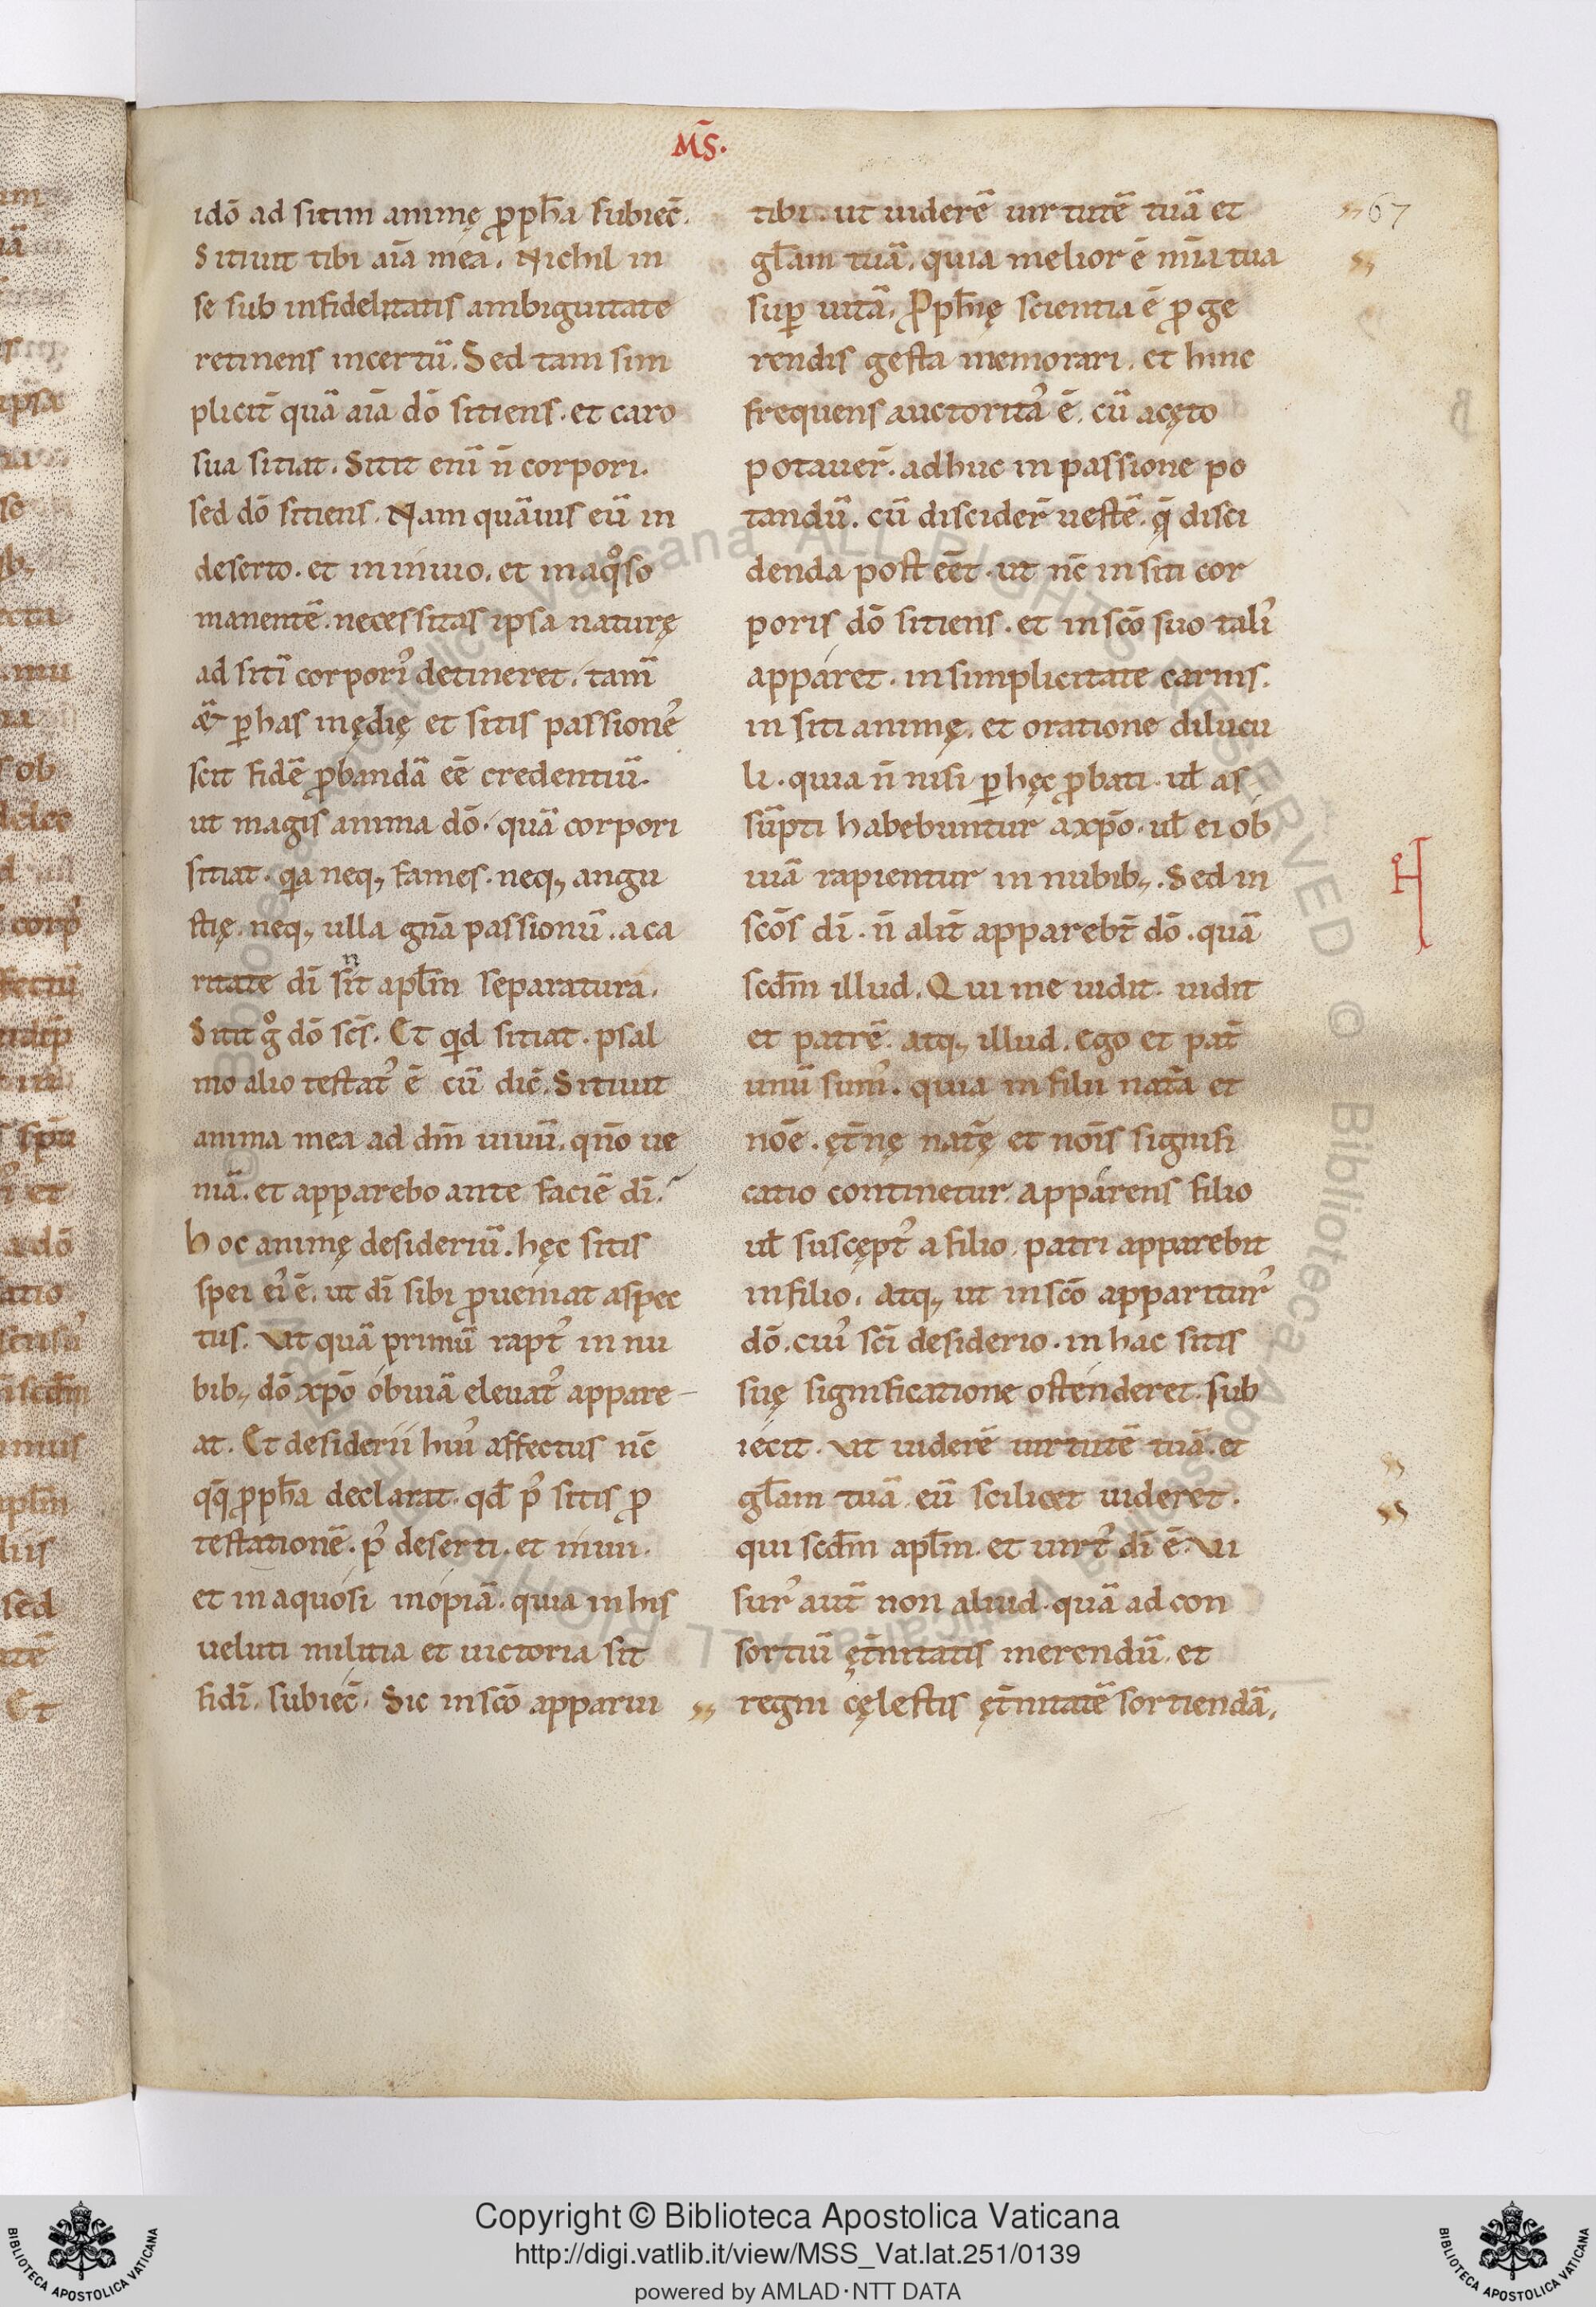 M̄S.
idō ad sitim animę ꝓph̄a subiec̄.
Sitiuit tibi aīa mea. Nichil in
se sub infidelitatis ambiguitate
retinens incertū. Sed tam sim
plicit̄ quā aīa dō sitiens. et caro
sua sitiat. Sitit enī n̄ corpori.
sed dō sitiens. Nam quāuis eū in
deserto. et in inuio. et in aqͦso
manentē. necessitas ipsa naturę
ad sitī corporis᾽ detineret. tam̄
&̄ ꝑ has inędię et sitis passione᾽
scit fidē ꝓbandā eē credentiū.
ut magis anima dō. quā corpori
sitiat. qia neq; fames. neq; angu
stię. neq; ulla gn̄a passionū. a ca
ritate dī sit apl̄m separatura.
Sitit gͦ dō sc̄s. Et qid sitiat. psal
mo alio testat᾽ ē cū dic̄. Sitiuit
anima mea ad dm̄ uiuū. qn̄o ue
niā. et apparebo ante faciē dī.
hoc animę desideriū. hęc sitis
spei ei᾽ ē. ut dī sibi ꝓueniat aspec
tus. Vt quā primū rapt᾽ in nu
bib; dō xp̄o obuiā eleuat᾽ appare-
at. Et desiderii hui᾽ affectus nc̄
q̄q̄ ꝓph̄a declarat. qd̄ p᾽ sitis ꝓ
testationē. p᾽ deserti. et inuii.
et inaquosi inopiā. quia in his
ueluti militia et uictoria sit
fidī. subiec̄. Sic in sc̄o apparui
tibi. ut uiderē uirtutē tuā et
gl̄am tuā. quia melior ē mīa tua
suꝑ uitā. Ꝓph̄ię scientia ē ꝓ ge
rendis gesta memorari. et hinc
frequens auctorita᾽ ē. cū acęto
potauer̄. adhuc in passione po
tandū. cū discider̄ uestē. q̄ disci
denda post eēt. ut nc̄ in siti cor
poris dō sitiens. et in sc̄o suo tali᾽
apparet. in simplicitate carnis.
in siti animę. et oratione dilucu
li. quia n̄ nisi ꝑ hęc ꝓbati. ul̄ as
sūpti habebuntur a xp̄o. ul̄ ei ob
uiā rapientur in nubib;. Sed in
sc̄os dī. n̄ alit̄ apparebt̄ dō. quā
scd̄m illud. Qui me uidit. uidit
et patrē. atq; illud. ego et pat̄
unū sum᾽. quia in filii nat̄a et
noē. ęt̄nę nat̄ę et noīs signifi
catio continetur. Apparens filio
ul̄ suscępt᾽ a filio. patri apparebit
in filio. Atq; ut in sc̄o apparitur᾽
dō. cui᾽ sc̄i desiderio. in hac sitis
suę significatione ostenderet. sub
iecit. Vt uiderē uirtutē tuā. et
gl̄am tuā. eū scilicet uideret.
qui scd̄m apl̄m. et uirt᾽ dī ē. Vi
sur᾽ aut̄ non aliud. quā ad con
sortiū ęt̄nitatis merendū. et
regni cęlestis ęt̄nitatē sortiendā.
67
Copyright © Biblioteca Apostolica Vaticana
http://digi.vatlib.it/view/MSS_Vat.lat.251/0139
powered by AMLAD·NTT DATA
BIBLIOTECA APOSTOLICA VATICANA
BIBLIOTECA APOSTOLICA VATICANA